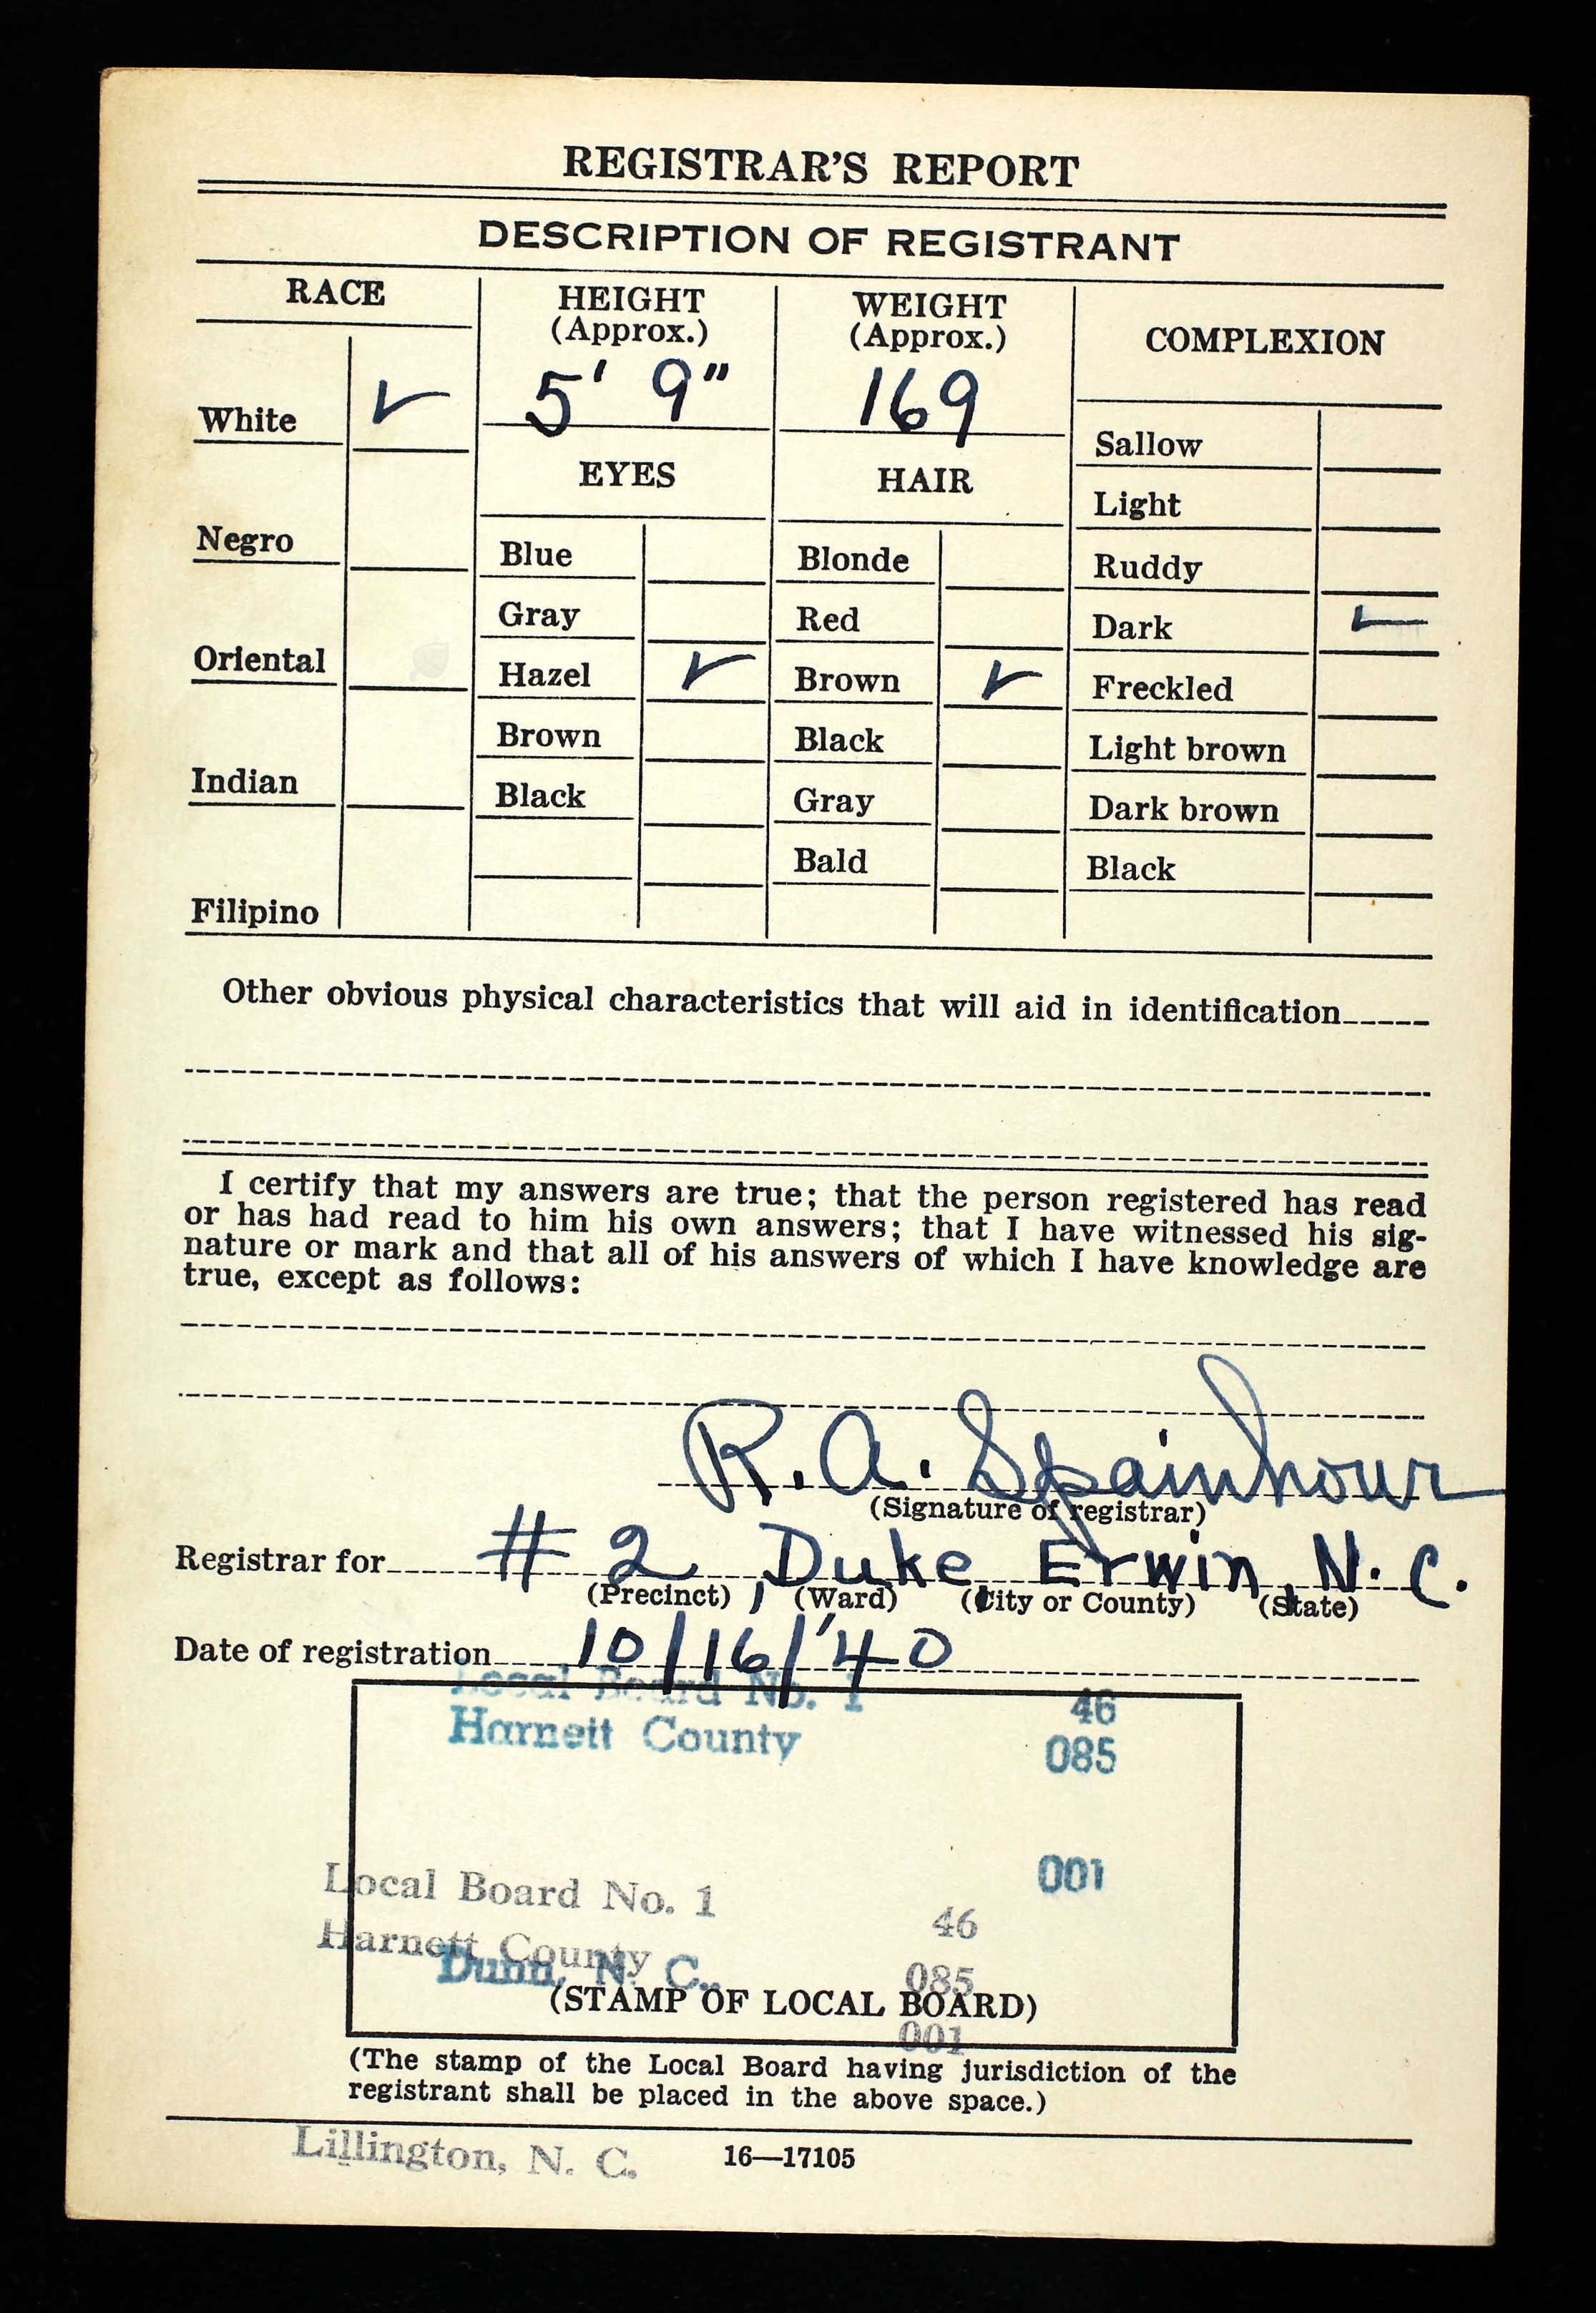 REGISTRAR'S REPORT
DESCRIPTION OF REGISTRANT
RACE HEIGHT (Approx.) WEIGHT (Approx.) COMPLEXION
White ✓ 5' 9" 169
EYES HAIR
Sallow
Light
Negro
Blue Blonde Ruddy
Gray Red Dark ✓
Oriental
Hazel ✓ Brown ✓ Freckled
Brown Black Light brown
Indian
Black Gray Dark brown
Bald Black
Filipino
Other obvious physical characteristics that will aid in identification
I certify that my answers are true; that the person registered has read
or has had read to him his own answers; that I have witnessed his sig-
nature or mark and that all of his answers of which I have knowledge are
true, except as follows:
R. A. Spainhour
(Signature of registrar)
Registrar for # 2, Duke, Erwin, N. C.
(Precinct) (Ward) (City or County) (State)
Date of registration 10/16/'40
Local Board No. 1 46
Harnett County 085
001
Local Board No. 1 46
Harnett County 085
Dunn, N. C.
(STAMP OF LOCAL BOARD)
001
(The stamp of the Local Board having jurisdiction of the
registrant shall be placed in the above space.)
Lillington, N. C. 16—17105